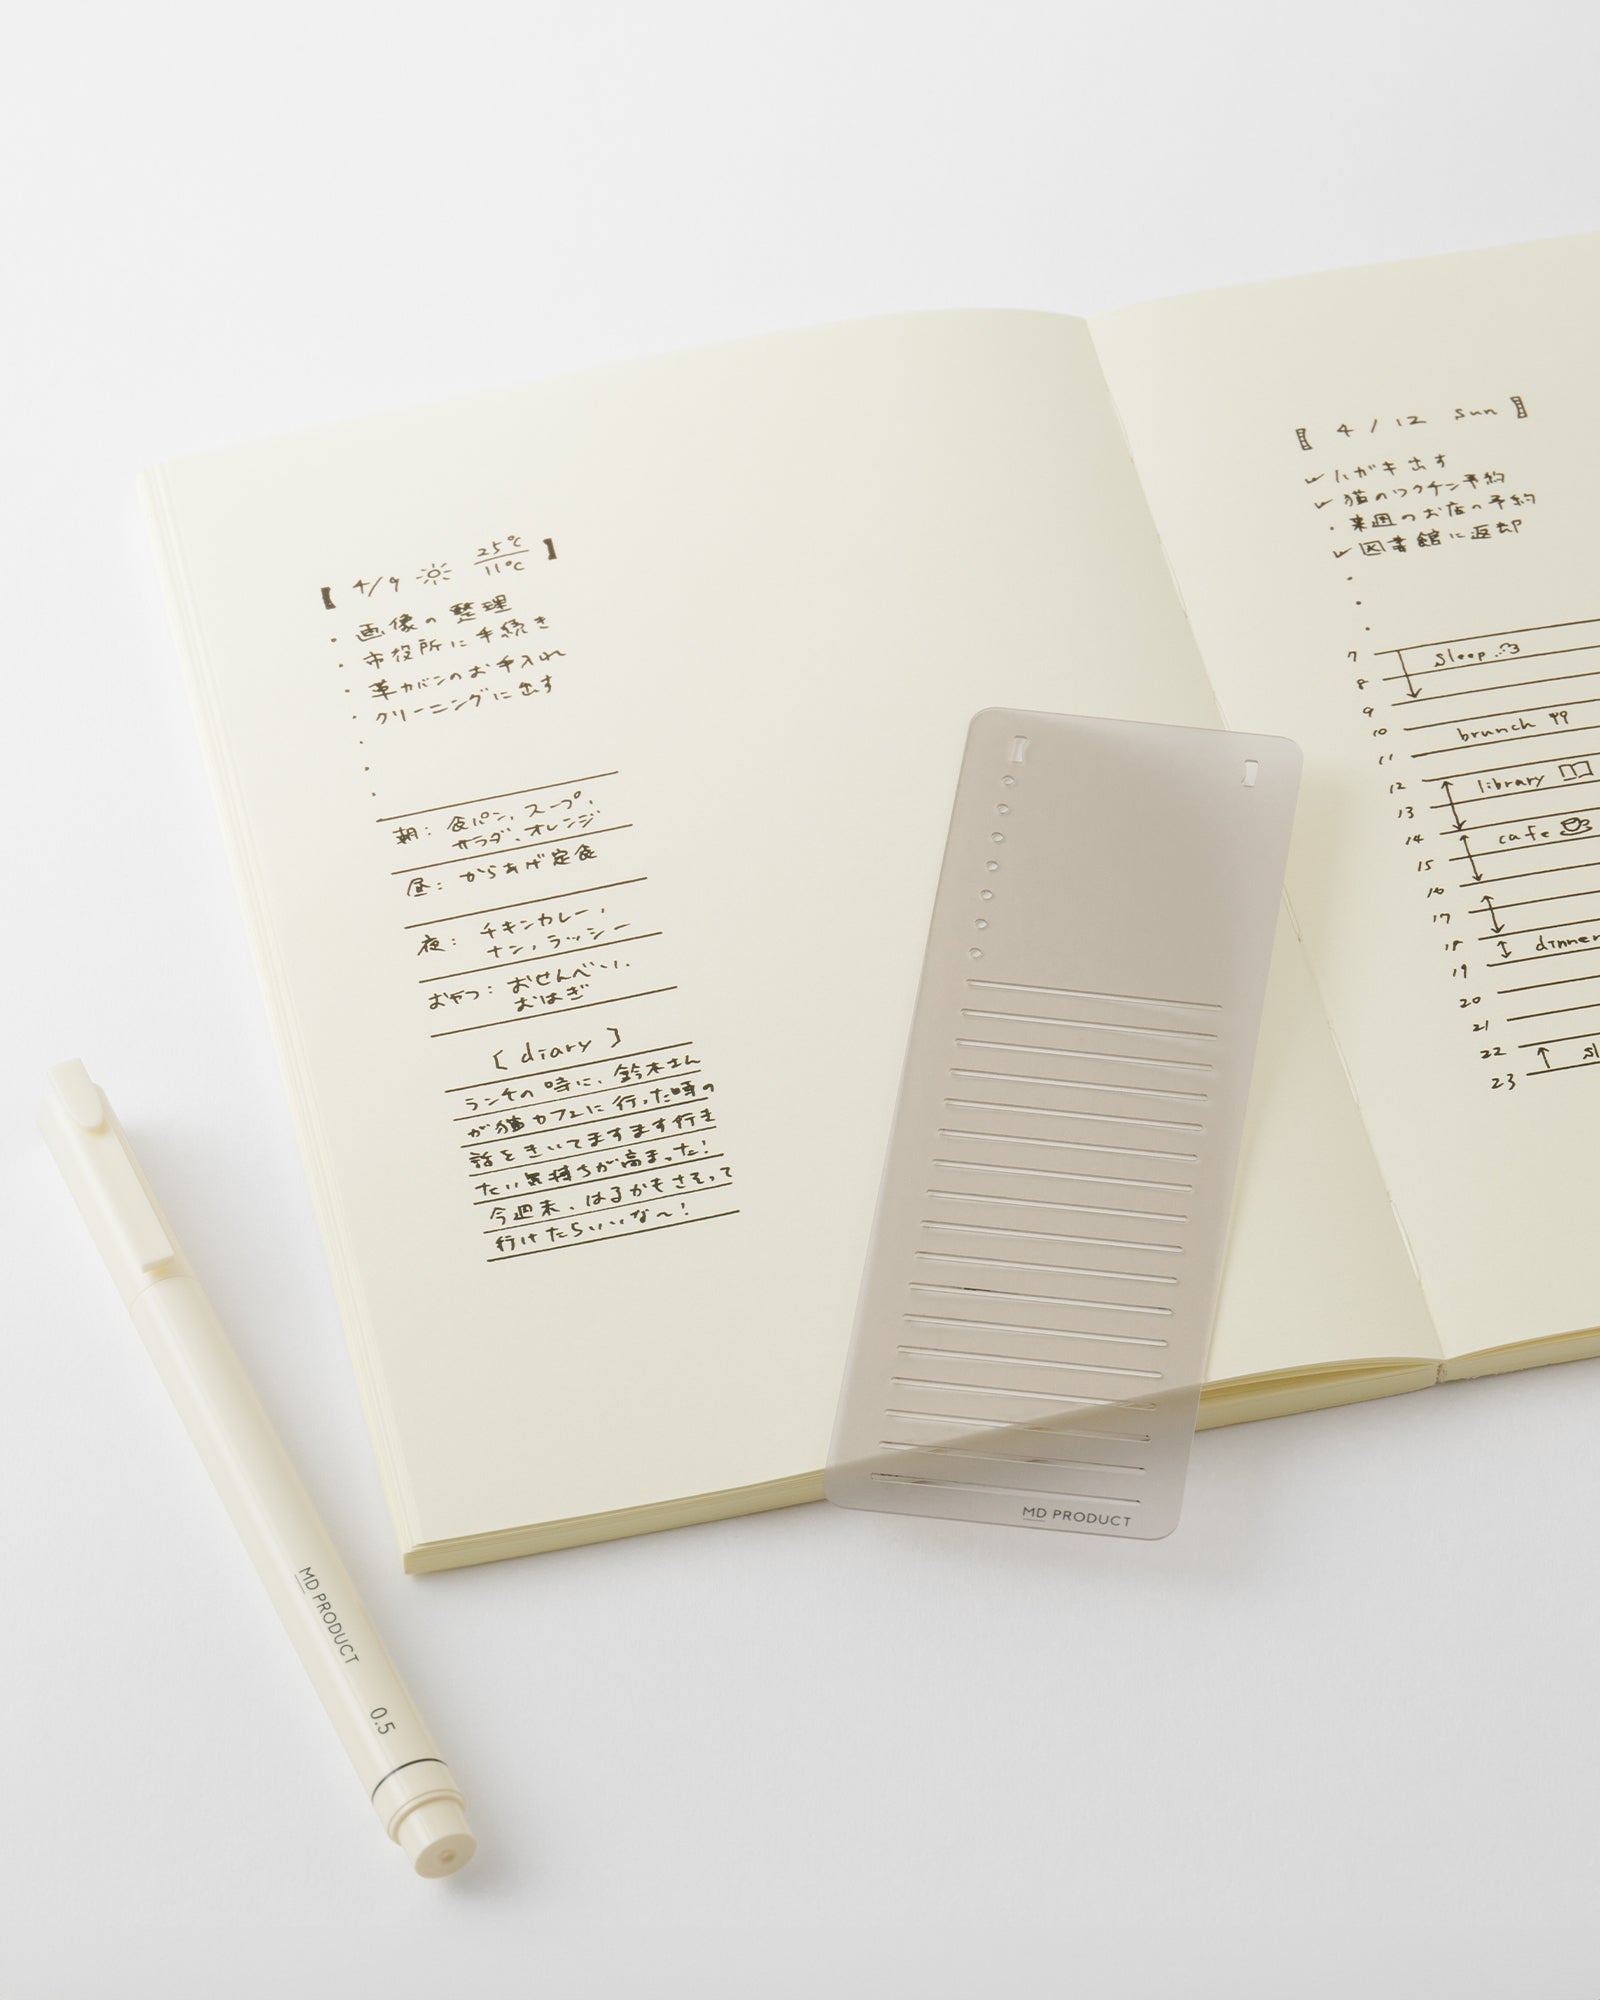 【 4/9 25℃ 11℃ 】
・画像の整理
・市役所に手続き
・革カバンのお手入れ
・クリーニングに出す
・
・
・
朝：食パン、スープ、
サラダ、オレンジ
昼：からあげ定食
夜：チキンカレー、
ナン、ラッシー
おやつ：おせんべい、
おはぎ
[ diary ]
ランチの時に、鈴木さん
が猫カフェに行った時の
話をきいてますます行き
たい気持ちが高まった！
今週末、はるかもさそって
行けたらいいな〜！
【 4/12 sun 】
✓ ハガキ出す
✓ 猫のワクチン予約
・来週のお店の予約
✓ 図書館に返却
・
・
・
7 sleep
8
9
10 brunch
11
12 library
13
14 cafe
15
16
17
18 dinner
19
20
21
22 sl
23
MD PRODUCT
MD PRODUCT 0.5